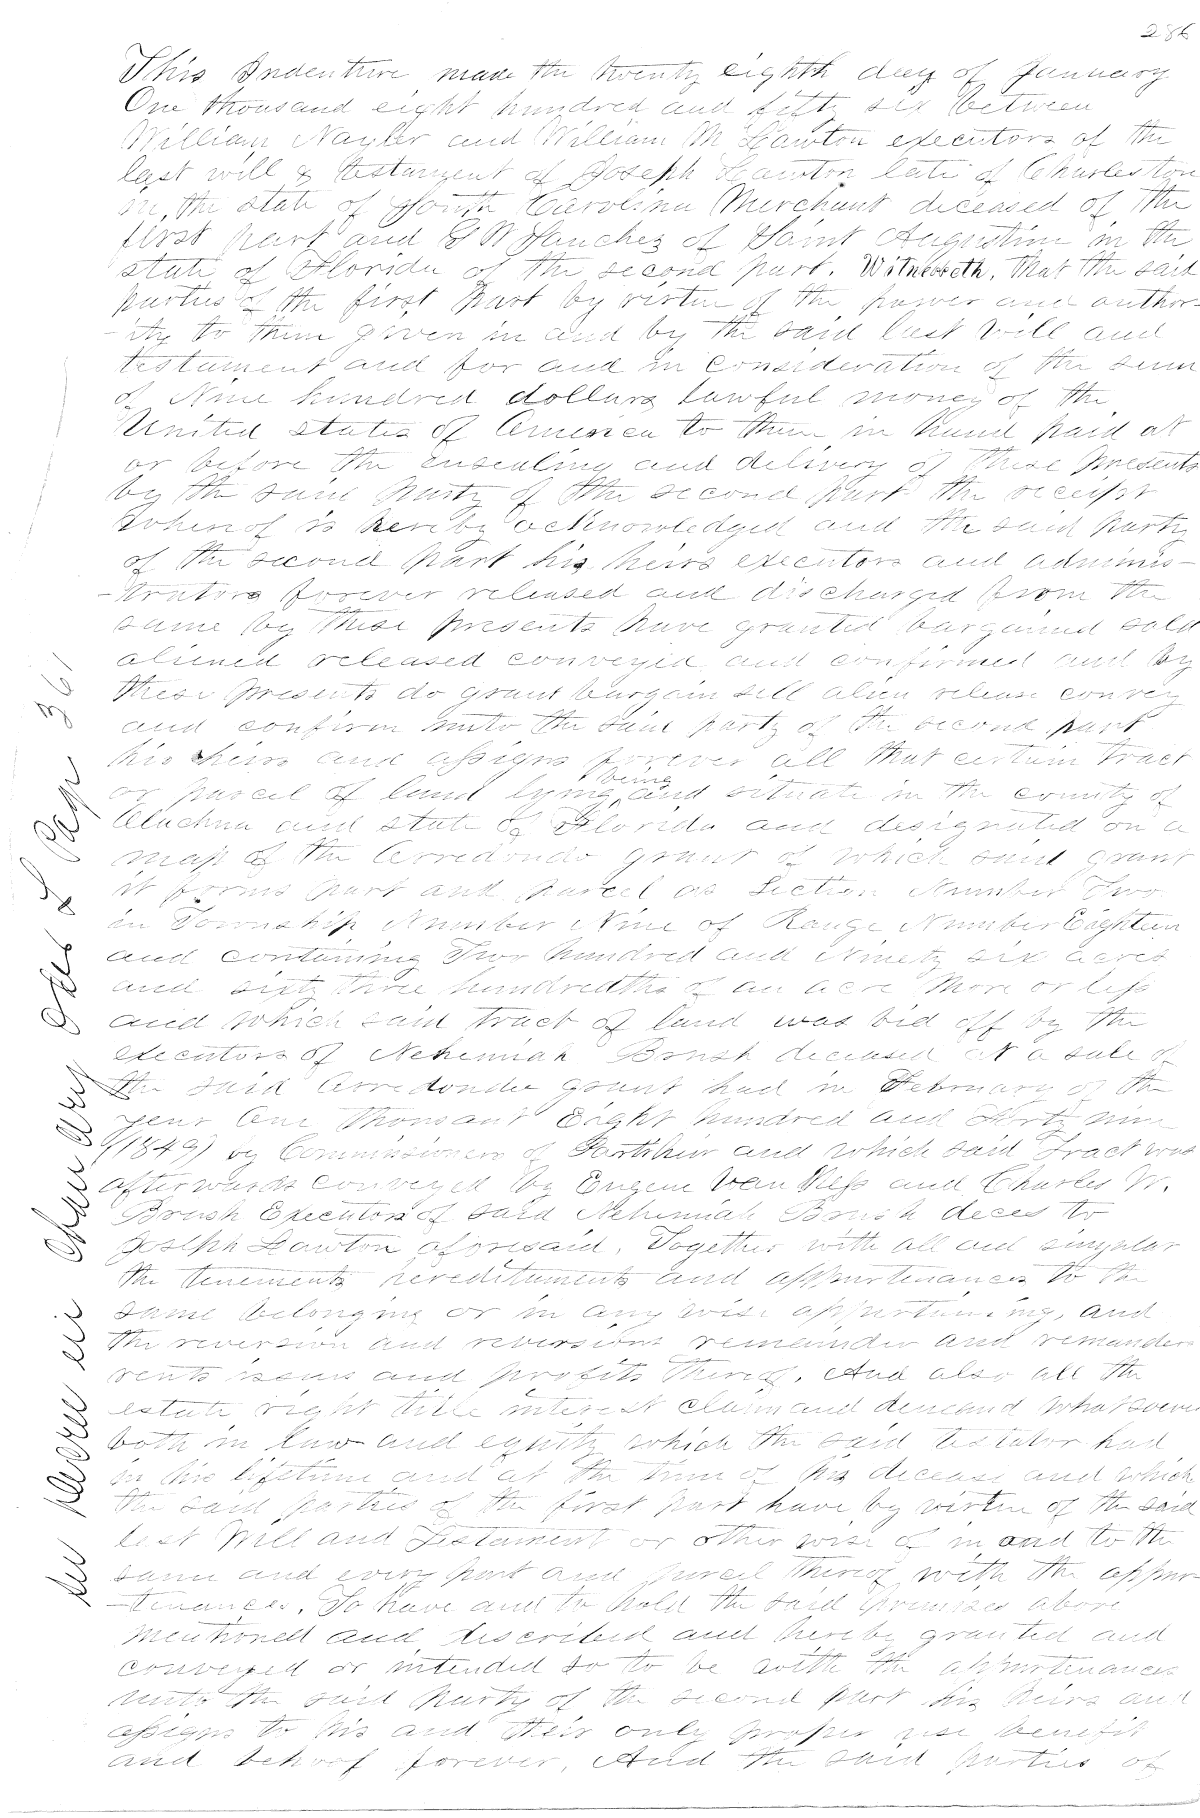 286
This Indenture made the twenty eighth day of January
One thousand eight hundred and fifty six between
William Nayler and William M Lawton executors of the
last will & testament of Joseph Lawton late of Charleston
in the state of South Carolina Merchant deceased of the
first part and G W Sanchez of Saint Augustine in the
state of Florida of the second part. Witnesseth. That the said
parties of the first part by virtue of the power and author-
-ity to them given in and by the said last Will and
testament and for and in consideration of the sum
of Nine hundred dollars lawful money of the
United states of America to them in hand paid at
or before the ensealing and delivery of these presents
by the said party of the second part the receipt
whereof is hereby acknowledged and the said party
of the second part his heirs executors and adminis-
-trators forever released and discharged from the
same by these presents have granted bargained sold
aliened released conveyed and confirmed and by
these presents do grant bargain sell alien release convey
and confirm unto the said party of the second part
his heirs and assigns forever all that certain tract
or parcel of land lying being and situate in the county of
Alachua and state of Florida and designated on a
map of the Arredondo grant of which said grant
it forms part and parcel as Section Number Two
in Township Number Nine of Range Number Eighteen
and containing Two hundred and Ninety six acres
and sixty three hundredths of an acre More or less
and which said tract of land was bid off by the
executors of Nehemiah Brush deceased at a sale of
the said Arredondo grant had in February of the
year One thousant Eight hundred and Forty nine
(1849) by Commissioners of Partition and which said Tract was
afterwards conveyed by Eugene Van Ness and Charles W.
Brush Executors of said Nehemiah Brush deces to
Joseph Lawton aforesaid. Together with all and singular
the tenements hereditaments and appurtenances to the
same belonging or in any wise appurtaining, and
the reversion and reversions remainder and remainders
rents issues and profits thereof. And also all the
estate right title interest claim and demand whatsoever
both in law and equity which the said testator had
in his lifetime and at the time of his decease and which
the said parties of the first part have by virtue of the said
last Will and Testament or other wise of in and to the
same and every part and parcel thereof with the appur-
-tenances. To have and to hold the said Premises above
mentioned and described and hereby granted and
conveyed or intended so to be with the appurtenances
unto the said party of the second part his heirs and
assigns to his and their only proper use benefit
and behoof forever. And the said parties of
L Page 361